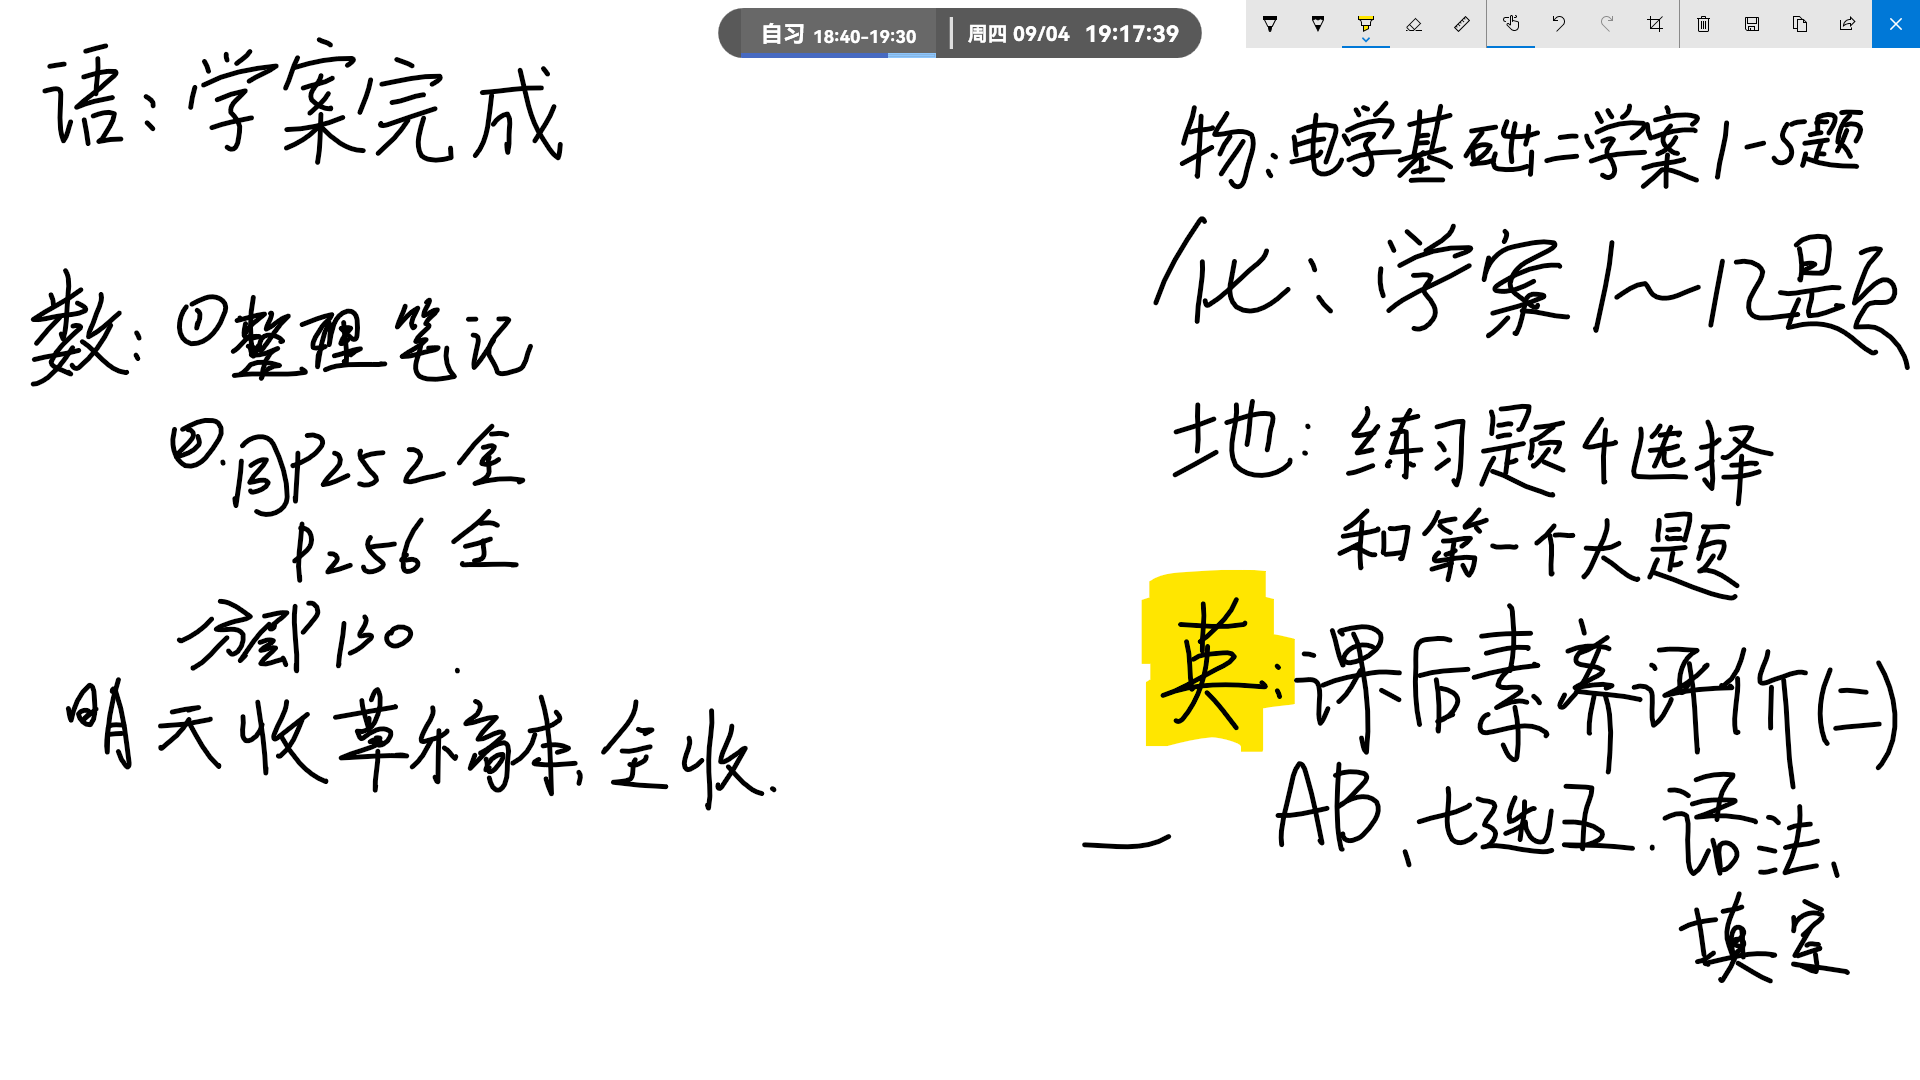 自习 18:40-19:30 周四 09/04 19:17:39
语：学案完成
数：①整理笔记
②.同P252全
P256全
分层P130.
明天收草稿本，全收.
物：电学基础二学案1-5题
化：学案1～12题
地：练习题4选择
和第一个大题
英：课后素养评价(二)
AB、七选五.语法、
填空